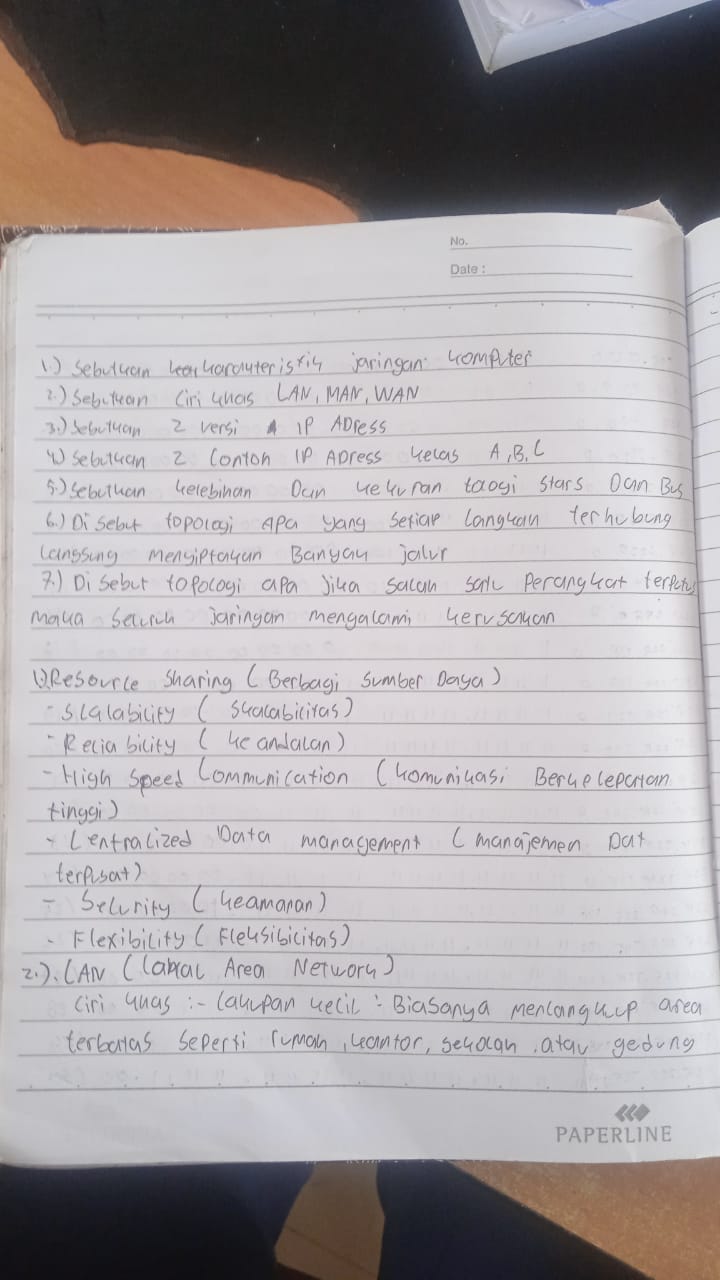 No.
Date :
1.) Sebutkan karakteristik jaringan komputer
2.) Sebutkan Ciri khas LAN, MAN, WAN
3.) Sebutkan 2 versi IP ADress
4.) Sebutkan 2 Contoh IP ADress kelas A, B, C
5.) Sebutkan kelebihan Dan kekuran taogi stars Dan Bus
6.) Di sebut topologi apa yang setiap langkan terhubung
Langsung mengiptakan Banyak jalur
7.) Di sebut topologi apa jika salah satu perangkat terputus
maka seluruh jaringan mengalami kerusakan
1).Resource sharing ( Berbagi sumber Daya )
- Scalability ( skalabilitas )
- Reliability ( ke andalan )
- High speed Communication ( komunikasi Berkelepatan
tinggi )
- Centralized Data management ( manajemen Dat
terpusat )
- Security ( keamanan )
- Flexibility ( Fleksibilitas )
2.). LAN ( Area Network )
Ciri khas :- Cakupan kecil : Biasanya mencangkup area
terbatas seperti rumah , kantor, sekolah , atau gedung
PAPERLINE